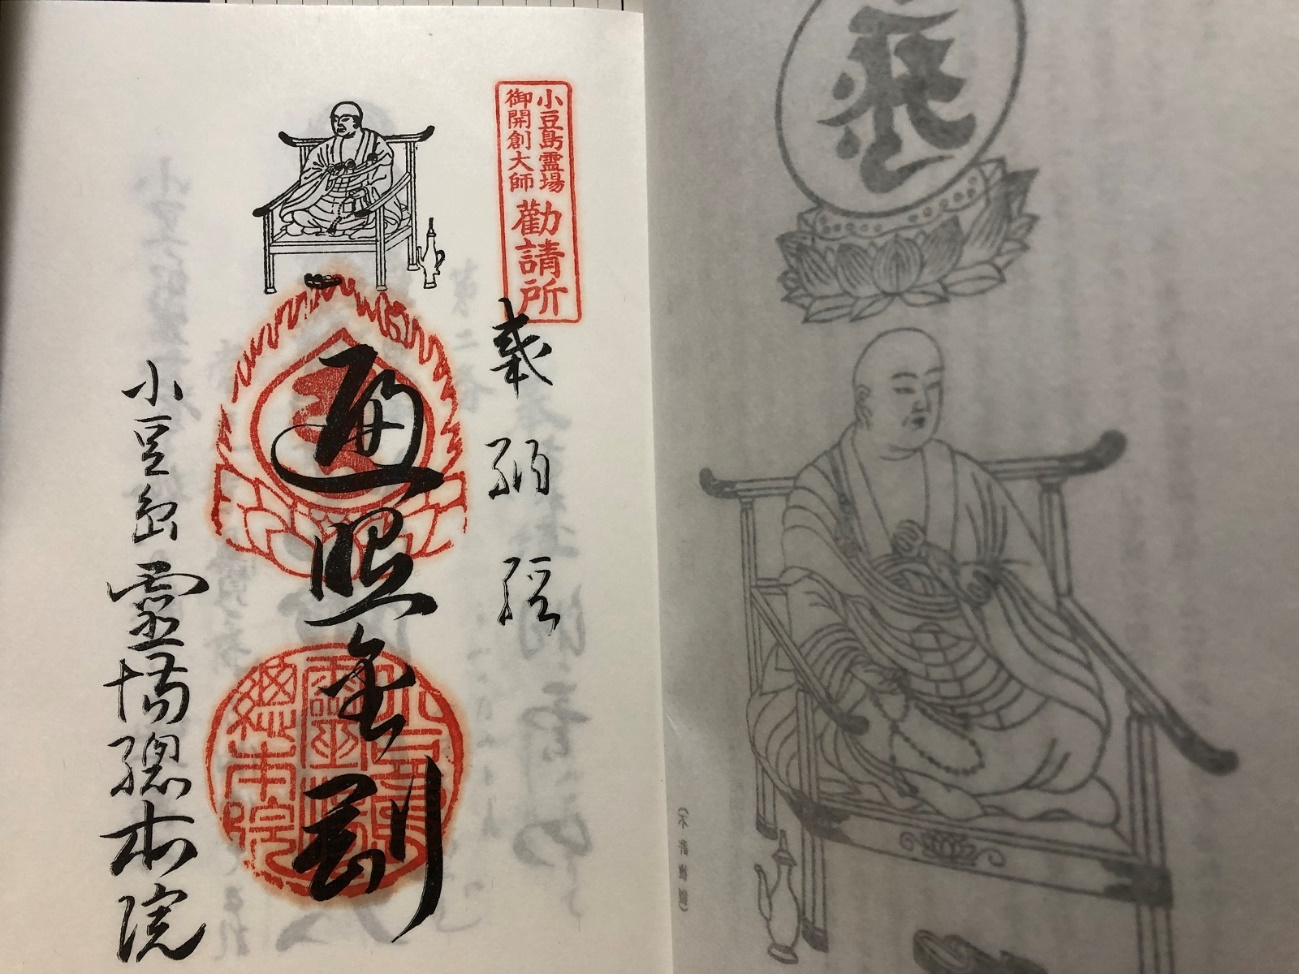 小豆島霊場
御開創大師
勧請所
奉納経
遍照金剛
小豆島霊場總本院
小豆島
霊場
總本院